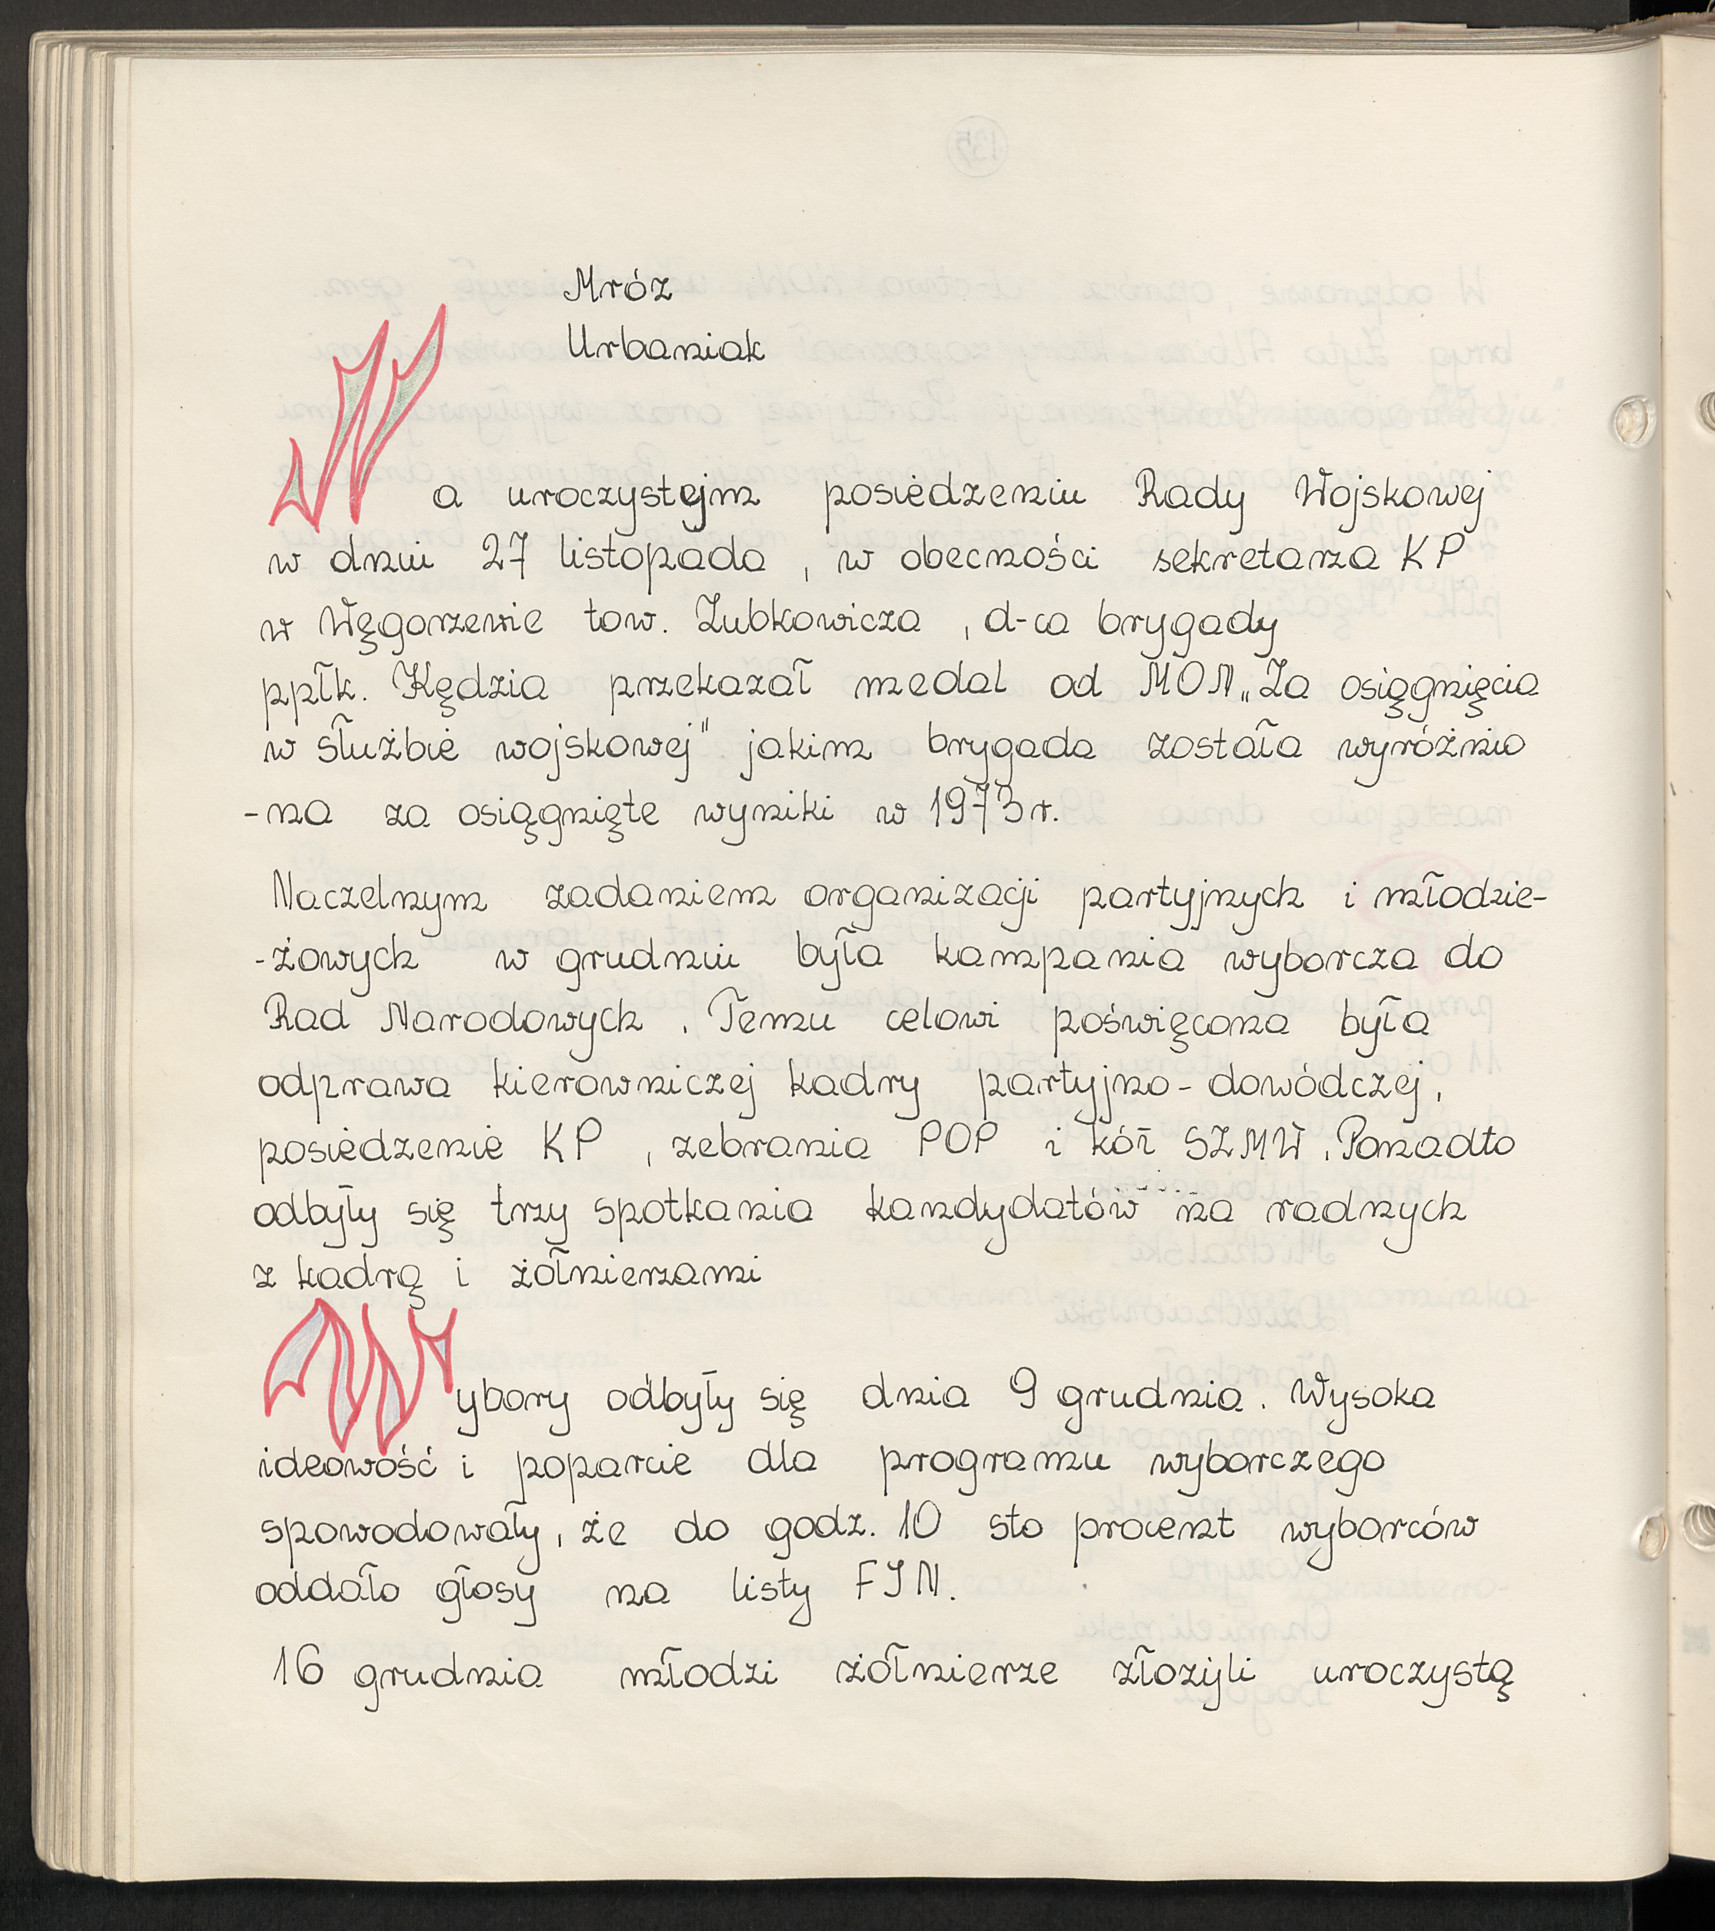 Mróz
Urbaniak
Na uroczystejm posiedzeniu Rady Wojskowej
w dniu 27 listopada , w obecności sekretarza KP
w Węgorzewie tow. Zubkowicza , d-ca brygady
ppłk. Kędzia przekazał medal od MON „Za osiągnięcia
w służbie wojskowej" jakim brygada została wyróżnio
-na za osiągnięte wyniki w 1973 r.
Naczelnym zadaniem organizacji partyjnych i młodzie-
-żowych w grudniu była kampania wyborcza do
Rad Narodowych . Temu celowi poświęcona była
odprawa kierowniczej kadry partyjno - dowódczej,
posiedzenie KP , zebrania POP i kół SZMW . Ponadto
odbyły się trzy spotkania kandydatów na radnych
z kadrą i żołnierzami
Wybory odbyły się dnia 9 grudnia . Wysoka
ideowość i poparcie dla programu wyborczego
spowodowały, że do godz. 10 sto procent wyborców
oddało głosy na listy FJN.
16 grudnia młodzi żołnierze złożyli uroczystą